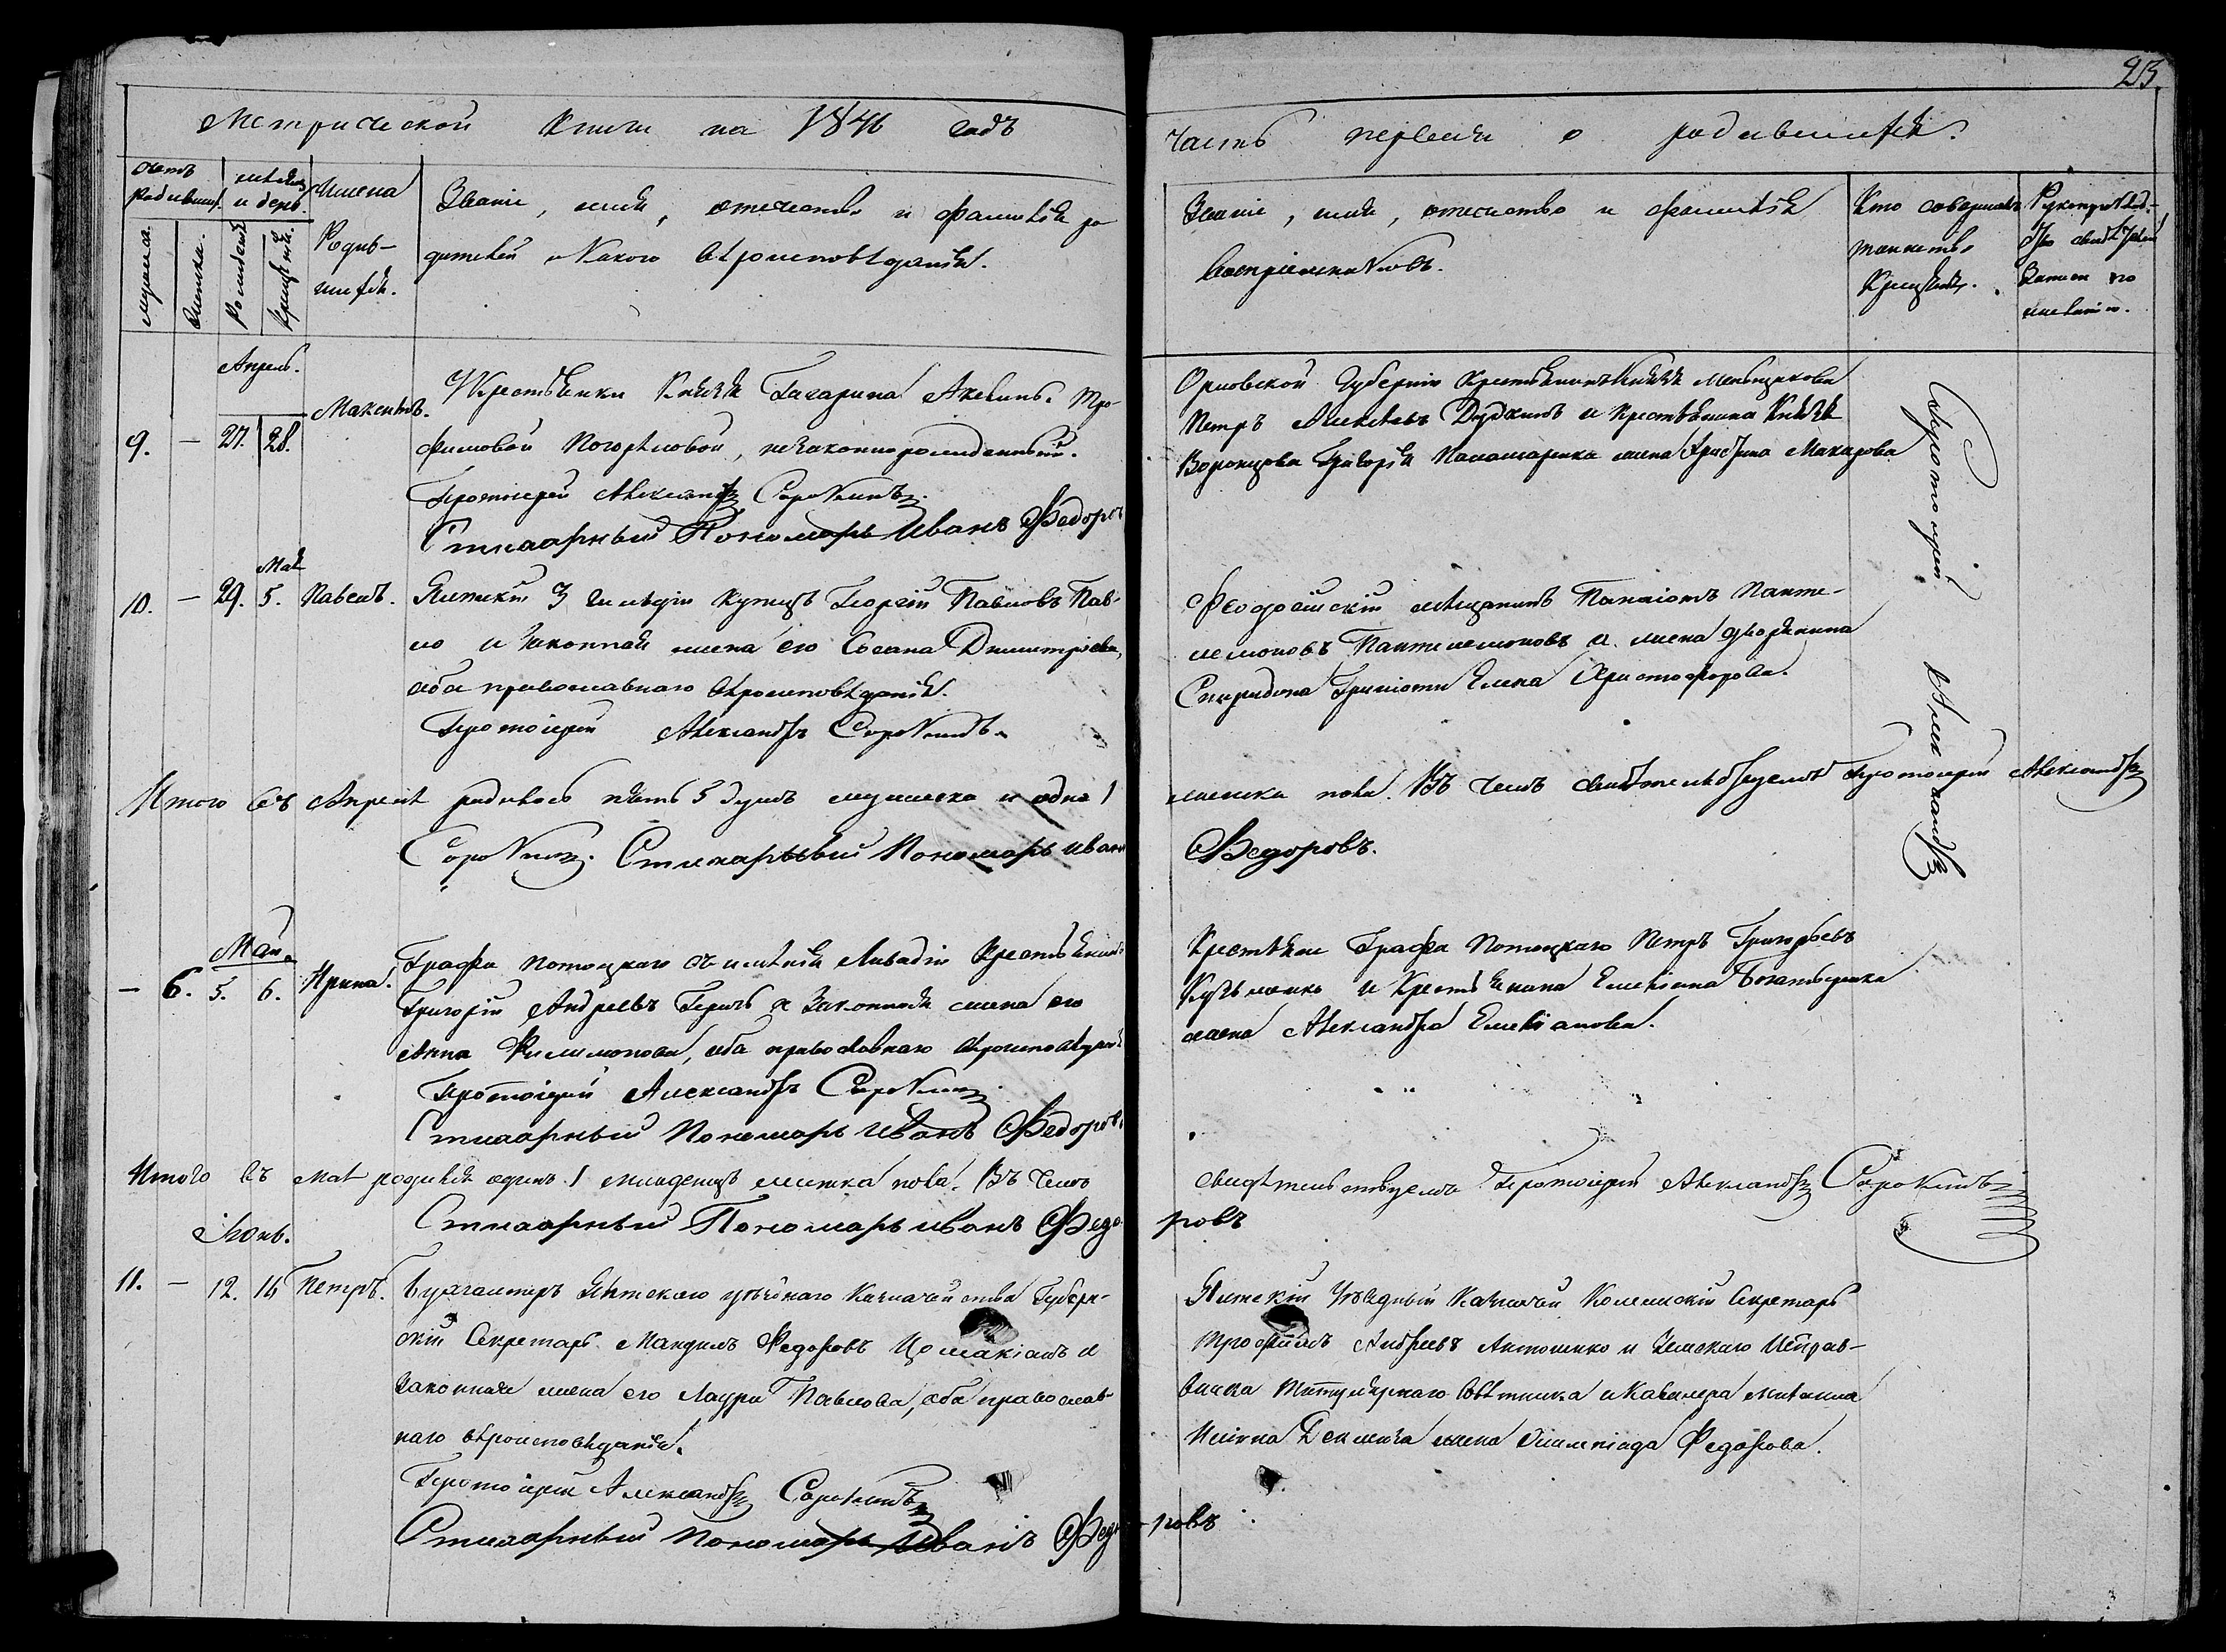 23.
Метрической книги на 1846 годъ
часть первая о родившихся.
Счетъ родившихся.
мѣсяцъ и день.
Имена Родив-
шихся.
мужеска.
женска.
Рожденія
Крещенія.
Званіе, имя, отечество и фамилія ро-
дителей и какого вѣроисповѣданія.
Званіе, имя, отчество и фамилія
воспріемниковъ.
Кто совершалъ
таинство
Крещенія.
Рукоприклад-
ство свидѣтелей
записи по
желанію.
Апрель.
9. — 27. 28. Максимъ.
Крестьянки Князя Гагарина Акелина Тро-
фимовой Погореловой, незаконнорожденный.
Протоіерей Александръ Сорокинъ.
Стихарный Пономарь Иванъ Федоровъ
Орловской Губерніи крестьянинъ Князя Меньщикова
Петръ Алексеевъ Дудкинъ и крестьянина Князя
Воронцова Григорія Паламаренка жена Христина Макарова
Протоіерей Александръ
Мая
10. — 29. 5. Павелъ.
Ялтинскій 3 гильдіи купецъ Георгій Павловъ Пав-
ло и законная жена его Сосана Димитріева,
оба православнаго вѣроисповѣданія.
Протоіерей Александръ Сорокинъ.
Феодосійскій мѣщанинъ Панаіотъ Панте-
лемоновъ Пантилемоновъ и жена дворянина
Спиридона Елена Христофорова.
Итого въ Апрелѣ родилось пять 5 душъ мужеска и одна 1
женска пола. Въ чемъ свидѣтельствуемъ Протоіерей Александръ
Сорокинъ. Стихарный Пономарь Иванъ
Федоровъ.
Май.
— 6. 5. 6. Ирина.
Графа Потоцкаго съ имѣнія Ливадіи крестьянинъ
Григорій Андреевъ и законная жена его
Анна Филимонова, оба православнаго вѣроисповѣданія
Протоіерей Александръ Сорокинъ
Стихарный Пономарь Иванъ Федоровъ
Крестьяне Графа Потоцкаго Петръ Григорьевъ
Кузьменко и крестьянина Емельяна
жена Александра Емельянова.
Итого въ маѣ родился одинъ 1 младенецъ женска пола. Въ чемъ
свидѣтельствуемъ Протоіерей Александръ Сорокинъ
Стихарный Пономарь Иванъ Федо-
ровъ
Іюнь.
11. — 12. 16 Петръ.
Бухгалтеръ Ялтскаго уѣзднаго Казначейства Губерн-
скій Секретарь Федоровъ и
законная жена его Лаура Павлова, оба православ-
наго вѣроисповѣданія.
Протоіерей Александръ Сорокинъ
Стихарный Пономарь Иванъ Федо-
ровъ
Ялтскій Уѣздный Казначей Коллежскій Секретарь
Трофимъ Андреевъ Антоненко и Земскаго Исправ-
ника Титулярнаго Совѣтника и Кавалера
жена Олимпіада Федорова.